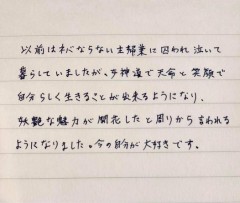 以前はネバならない主婦業に囚われ泣いて
暮らしていましたが、子神道で天命と笑顔で
自分らしく生きることが出来るようになり、
妖艶な魅力が開花したと周りから言われる
ようになりました。今の自分が大好きです。